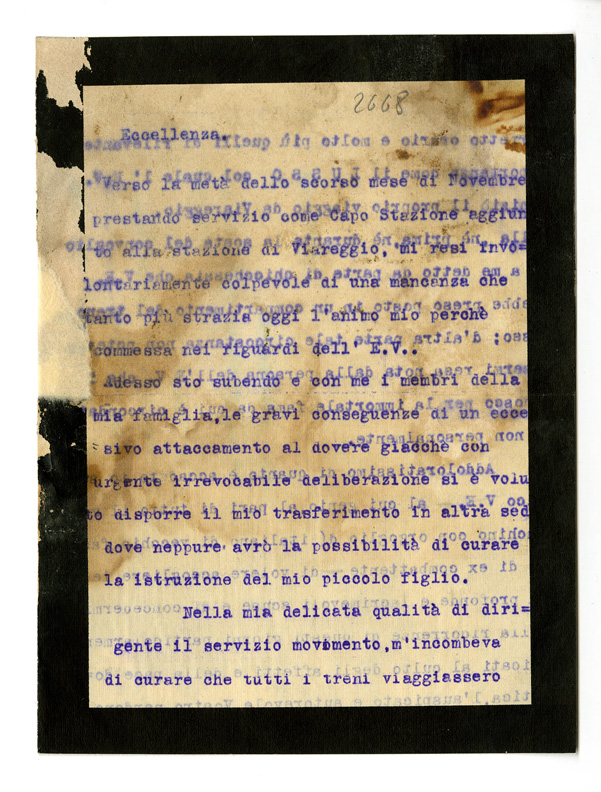 2668
Eccellenza.
Verso la metà dello scorso mese di Novembre
prestando servizio come Capo Stazione aggiun
to alla stazione di Viareggio, mi resi invo=
lontariamente colpevole di una mancanza che
tanto più strazia oggi l'animo mio perchè
commessa nei riguardi dell' E.V..
Adesso sto subendo e con me i membri della
mia famiglia,le gravi conseguenze di un ecce
sivo attaccamento al dovere giacchè con
urgente irrevocabile deliberazione si è volu
to disporre il mio trasferimento in altra sed
dove neppure avrò la possibilità di curare
la istruzione del mio piccolo figlio.
Nella mia delicata qualità di diri=
gente il servizio movimento,m'incombeva
di curare che tutti i treni viaggiassero